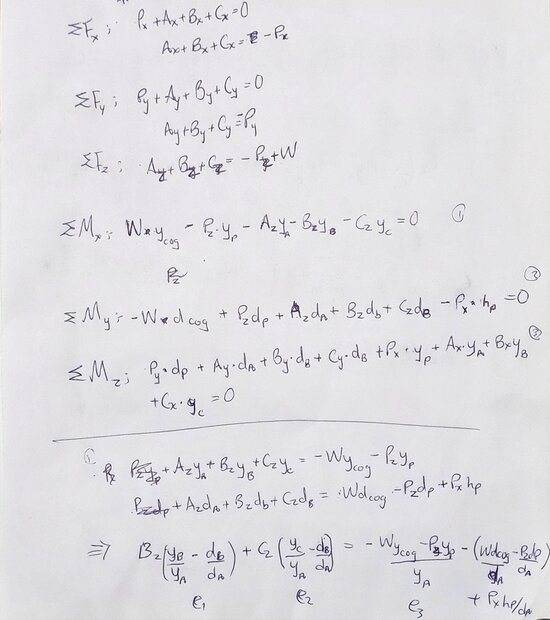 ΣFx: Px + Ax + Bx + Cx = 0
Ax + Bx + Cx = - Px
ΣFy: Py + Ay + By + Cy = 0
Ay + By + Cy = Py
ΣFz: Az + Bz + Cz = - Pz + W
ΣMx: W * ycog - Pz · yp - Az yA - Bz yB - Cz yc = 0 ①
Pz
②
ΣMy: - W * dcog + Pz dp + Az dA + Bz db + Cz dB - Px * hp = 0
③
ΣMz: Py * dp + Ay · dA + By · dB + Cy · dB + Px · yp + Ax · yA + Bx yB
+ Cx · yc = 0
①
Az yA + Bz yB + Cz yc = - W ycog - Pz yp
Az dA + Bz db + Cz dB = W dcog - Pz dp + Px hp
⇒ Bz (yB/yA - dB/dA) + Cz (yc/yA - dB/dA) = (- W ycog - Pz yp)/yA - (W dcog - Pz dp)/dA
+ Px hp/dA
e1 e2 e3